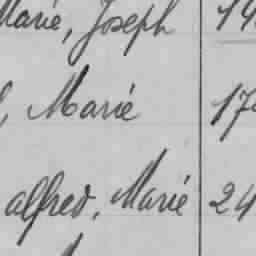 Marie, Joseph 19
, Marie 17
alfred, Marie 24